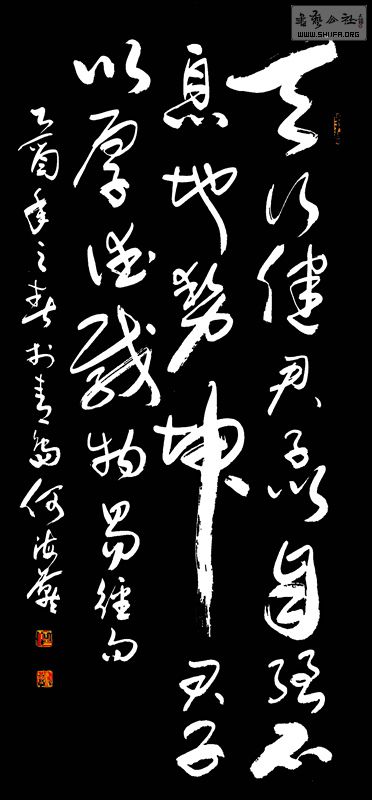 天行健君子以自强不
息地势坤君子
以厚德载物易经句
乙酉年之春于青岛何海霞
書藝公社
WWW.SHUFA.ORG